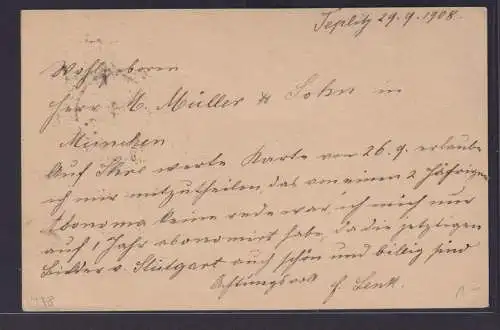 Teplitz 29.9.1908.
Wohlgeboren
Herr M. Müller & Sohn in
München
Auf Ihre werte Karte vom 26.9. erlaube
ich mir mitzutheilen, das von einen 2 Jährigen
Abonoma keine rede war, ich mich nur
auf 1 Jahr abonomirt habe, da die jetztigen
Bilder v. Stutgart auch schön und billig sind
Achtungsvoll F. Lenk.